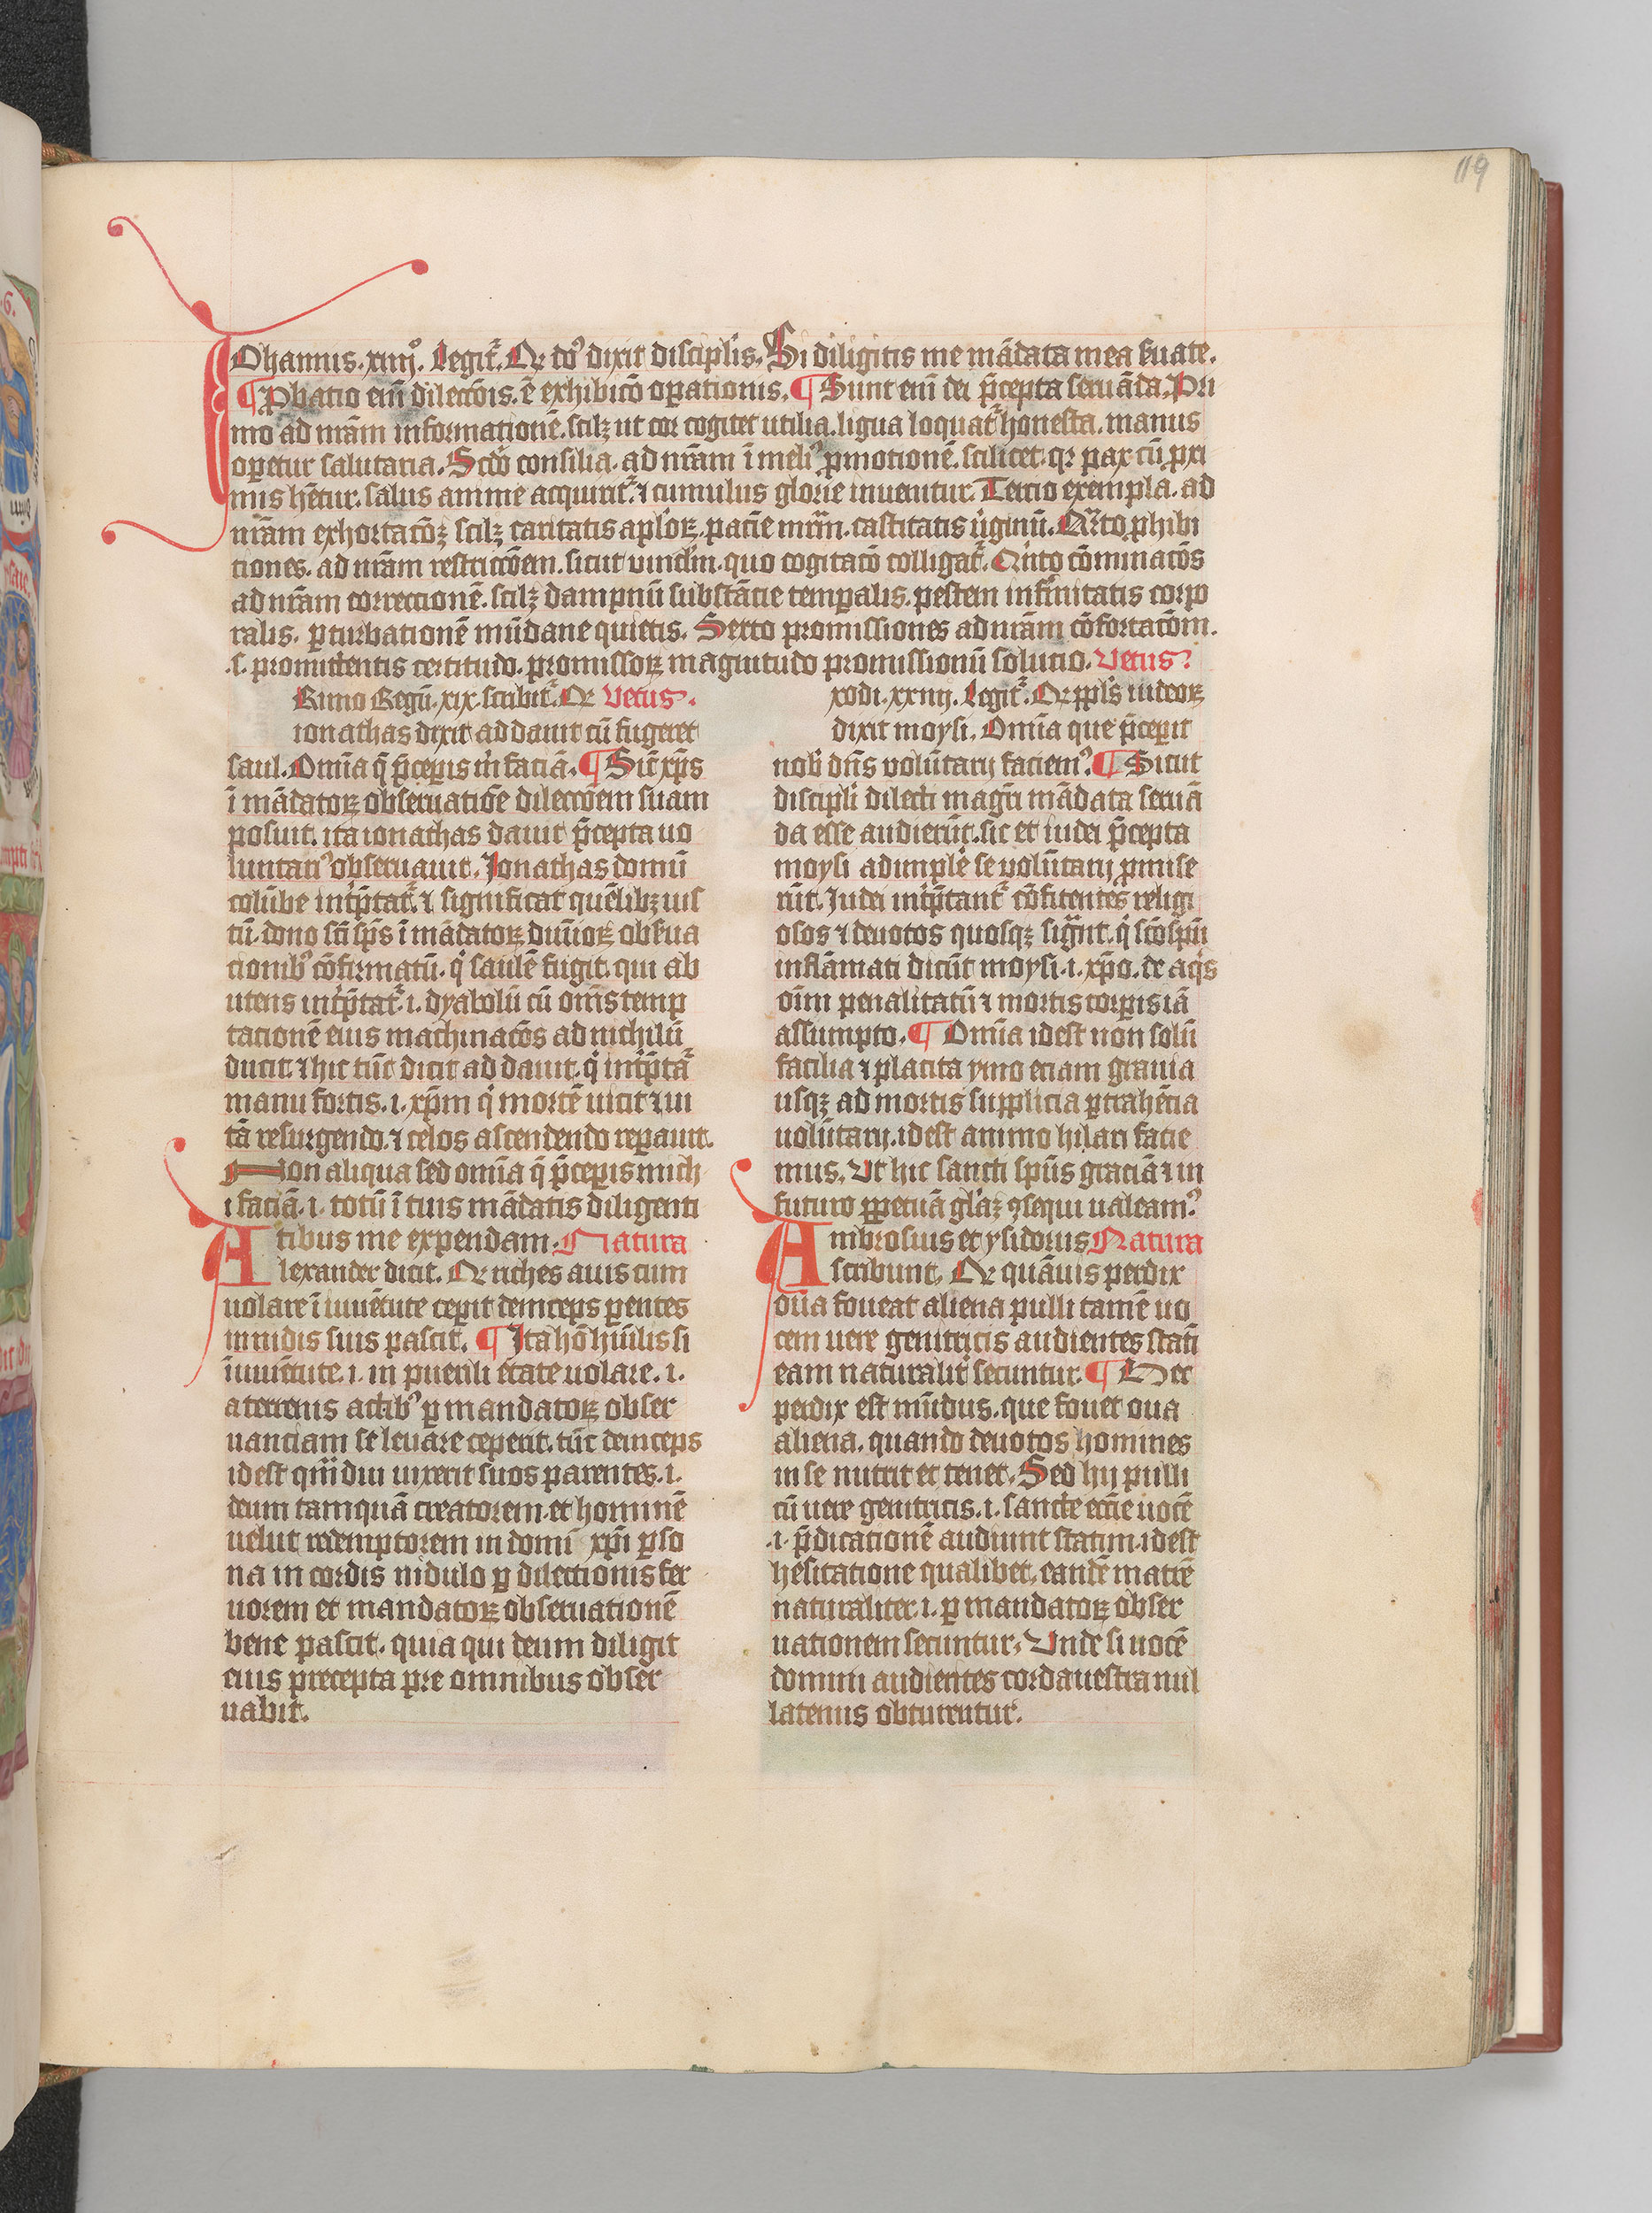 119
Johannis .xiiij. legit᷑. Qꝛ dn̄s dixit discipl̓is. Si diligitis me mādata mea ẜuate.
¶ Ꝓbatio eni᷑ dilecc̄ōis ē exhibic̄o oꝑationis. ¶ Sunt eni᷑ dei p̄cepta seruāda. Pri
mo ad nr̄am informationē. scilꝫ ut cor cogitet utilia. ligua loquat᷑ honesta. manus
oꝑetur salutaria. Scd̄o consilia. ad nr̄am ī meli⁹ ꝓmotionē. scilicet. qꝛ pax cū ꝓxi
mis hētur. salus anime acquirit᷑. ⁊ cumulus glorie inuenitur. Tercio exempla. ad
nr̄am exhortac̄oꝫ scilꝫ caritatis apl̓oꝝ. pacīe mr̄m. castitatis ūginū. Qͣrto ꝓhibi
tiones. ad nr̄am restricc̄ōem. sicut vincl̓m. quo cogitac̄o colligat᷑. Qͥnto cōminac̄ōs
ad nr̄am correctionē. scilꝫ dampnū substācie tempalis. pestem infirmitatis corpo
ralis. ꝑturbationē mūdane quietis. Sexto promissiones ad nr̄am cōfortac̄ōm.
.s. promittentis certitudo. promissoꝝ magnitudo promissionū solucio. Vetus.
Rimo Regū .xix. scribit᷑. Qꝛ Vetus.
ionathas dixit ad dauit cū fugeret
saul. Om̄ia q̄ p̄ceꝑis m̓ faciā. ¶ Sic̄ xp̄s
ī mādatoꝝ obseruatiōe dilecc̄ōem suam
posuit. ita ionathas dauit p̄cepta uo
luntari⁹ obseruauit. Jonathas domū
colūbe int̓p̄tat᷑. ⁊ significat quēlibꝫ ius
tū. dono sc̄i sp̄s ī mādatoꝝ diuīoꝝ obẜua
tionib⁹ cōfirmatū. qͥ saulē fugit. qui ab
utens int̓p̄tat᷑ .i. dyabolū cū om̄is temp
tacionē eius machinac̄ōs ad nichilū
ducit. ⁊ hic tūc dicit ad dauit. qͥ int̓p̄ta᷑
manu fortis .i. xp̄m qͥ mortē uicit ⁊ ui
tā resurgendo. ⁊ celos ascendendo reꝑauit.
Non aliqua sed om̄ia q̄ p̄ceꝑis mich
i faciā .i. totū ī tuis mādatis diligenti
tibus me expendam. Natura
Alexander dicit. Qꝛ niches auis cum
uolare ī iuuētute ceperit deinceps ꝑentes
in nidis suis pascit. ¶ Ita hō hūilis si
ī iuuētute .i. in pueili etate uolare .i.
a terrenis actib⁹ ꝑ mandatoꝝ obser
uanciam se leuare ceperit. tūc deinceps
id est qͣmdiu uixerit suos parentes .i.
deum tamquā creatorem et hominē
uelut redemptorem in domi xp̄i ꝑso
na in cordis nidulo ꝑ dilectionis fer
uorem et mandatoꝝ obseruationē
bene pascit. quia qui deum diligit
eius precepta pre omnibus obser
uabit.
xodi .xxiiij. legit᷑. Qꝛ ppl̓s iudeoꝝ
dixit moysi. Om̄ia que p̄cepit
nob̓ dn̄s volūtarij faciem⁹. ¶ Sicut
discipl̓i dilecti magr̄i mādata seruā
da esse audierūt. sic et iudei p̄cepta
moysi adimple᷑ se volūtarij ꝓmise
rūt. Judei int̓p̄tant᷑ cōfitentes religi
osos ⁊ deuotos quosqꝫ signͣnt. qͥ sc̄o sp̄u
inflāmati dicūt moysi .i. xp̄o. de aqͥs
oīm penalitatū ⁊ mortis corꝑis iā
assumpto. ¶ Om̄ia id est non solū
facilia ⁊ placita ymo eciam grauia
usqꝫ ad mortis supplicia ꝑtrahēcia
uolūtarij. id est animo hilari facie
mus. Vt hic sancti sp̄us graciā ⁊ in
futuro ꝑpetuā gl̓iaꝫ ꝯsequi ualeam⁹.
Ambrosius et ysidorus Natura
scribunt. Qꝛ quāuis perdix
oūa foueat aliena pulli tamē uo
cem uere genitricis audientes stati᷑
eam naturalit̓ secuntur. ¶ Hec
perdix est mūdus. que fouet oua
aliena. quando deuotos homines
in se nutrit et tenet. Sed hij pulli
cū uere genitricis .i. sancte ecc̄ie uocē
.i. p̄dicationē audiunt statim. id est
hesitatione qualibet. eandē matrē
naturaliter .i. ꝑ mandatoꝝ obser
uationem secuntur. Vnde si uocē
domini audientes corda uestra nul
latenus obturentur.